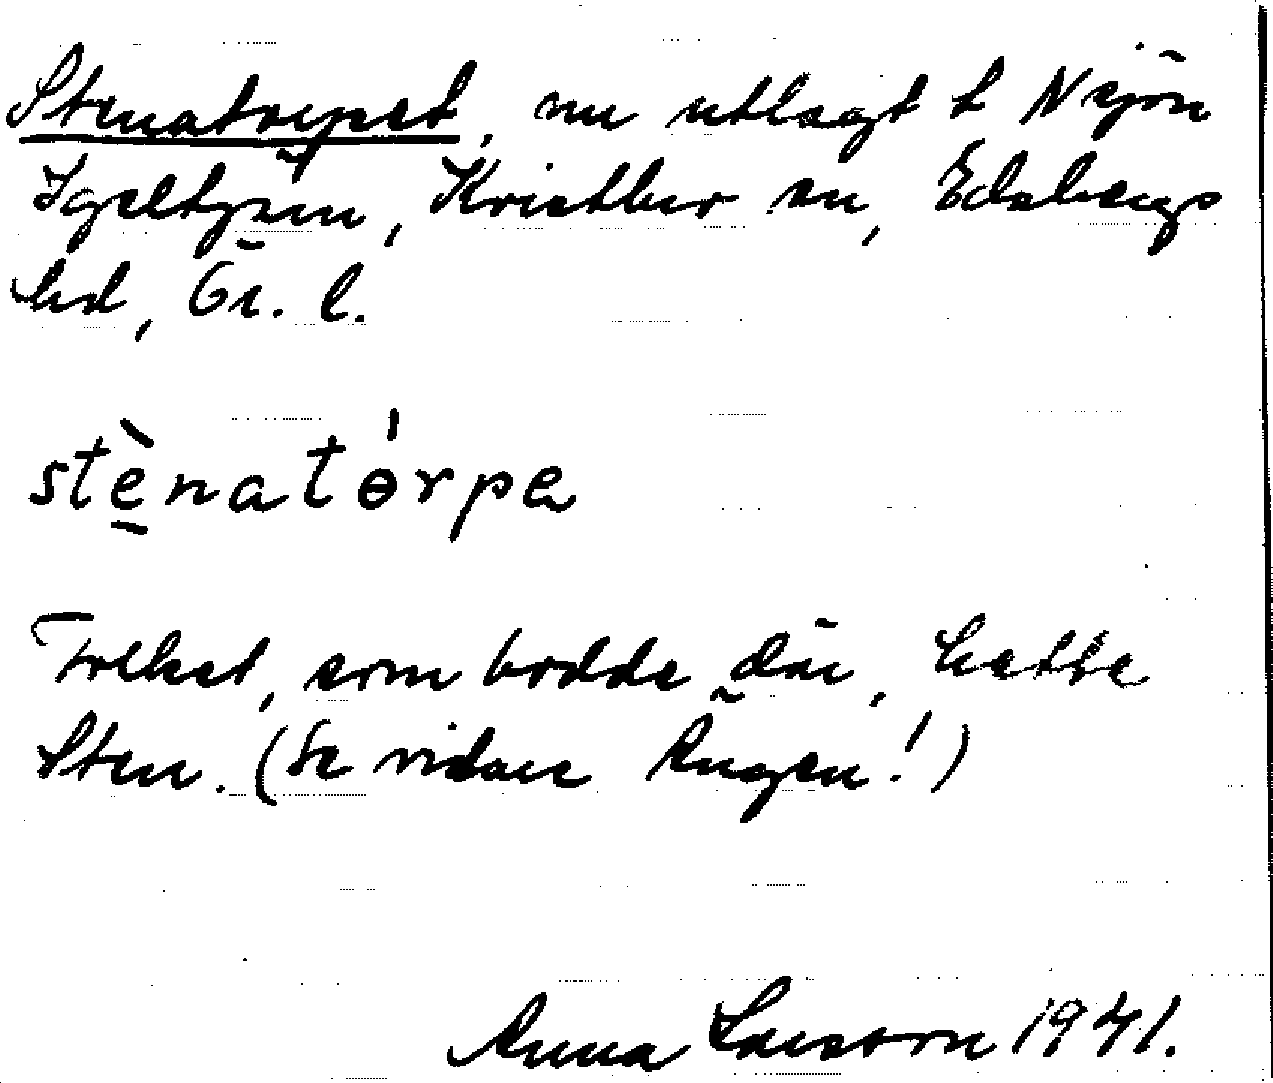 Stenatorpet, nu utlagt t N sjön
Igeltjärn, Kvistbro sn, Edsbergs
hd, Ör. l.
stènatɵ́rpe
Folket, som bodde där, hette
Sten. (Se vidare Ängen!)
Anna Larsson 1941.